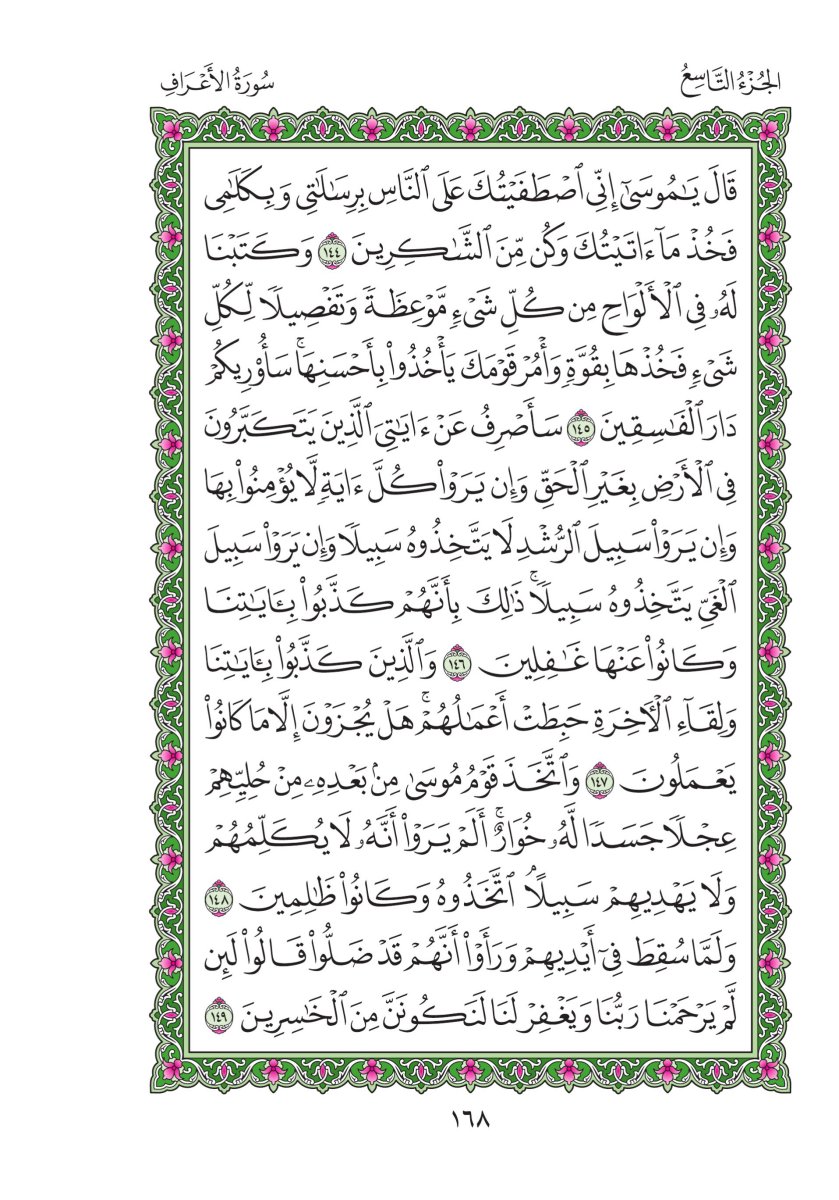 الجُزْءُ التَّاسِعُ
سُورَةُ الأَعْرَافِ
قَالَ يَـٰمُوسَىٰٓ إِنِّى ٱصْطَفَيْتُكَ عَلَى ٱلنَّاسِ بِرِسَـٰلَـٰتِى وَبِكَلَـٰمِى
فَخُذْ مَآ ءَاتَيْتُكَ وَكُن مِّنَ ٱلشَّـٰكِرِينَ ١٤٤ وَكَتَبْنَا
لَهُۥ فِى ٱلْأَلْوَاحِ مِن كُلِّ شَىْءٍ مَّوْعِظَةً وَتَفْصِيلًا لِّكُلِّ
شَىْءٍ فَخُذْهَا بِقُوَّةٍ وَأْمُرْ قَوْمَكَ يَأْخُذُوا۟ بِأَحْسَنِهَا ۚ سَأُو۟رِيكُمْ
دَارَ ٱلْفَـٰسِقِينَ ١٤٥ سَأَصْرِفُ عَنْ ءَايَـٰتِىَ ٱلَّذِينَ يَتَكَبَّرُونَ
فِى ٱلْأَرْضِ بِغَيْرِ ٱلْحَقِّ وَإِن يَرَوْا۟ كُلَّ ءَايَةٍ لَّا يُؤْمِنُوا۟ بِهَا
وَإِن يَرَوْا۟ سَبِيلَ ٱلرُّشْدِ لَا يَتَّخِذُوهُ سَبِيلًا وَإِن يَرَوْا۟ سَبِيلَ
ٱلْغَىِّ يَتَّخِذُوهُ سَبِيلًا ۚ ذَٰلِكَ بِأَنَّهُمْ كَذَّبُوا۟ بِـَٔايَـٰتِنَا
وَكَانُوا۟ عَنْهَا غَـٰفِلِينَ ١٤٦ وَٱلَّذِينَ كَذَّبُوا۟ بِـَٔايَـٰتِنَا
وَلِقَآءِ ٱلْـَٔاخِرَةِ حَبِطَتْ أَعْمَـٰلُهُمْ ۚ هَلْ يُجْزَوْنَ إِلَّا مَا كَانُوا۟
يَعْمَلُونَ ١٤٧ وَٱتَّخَذَ قَوْمُ مُوسَىٰ مِنۢ بَعْدِهِۦ مِنْ حُلِيِّهِمْ
عِجْلًا جَسَدًا لَّهُۥ خُوَارٌ ۚ أَلَمْ يَرَوْا۟ أَنَّهُۥ لَا يُكَلِّمُهُمْ
وَلَا يَهْدِيهِمْ سَبِيلًا ۘ ٱتَّخَذُوهُ وَكَانُوا۟ ظَـٰلِمِينَ ١٤٨
وَلَمَّا سُقِطَ فِىٓ أَيْدِيهِمْ وَرَأَوْا۟ أَنَّهُمْ قَدْ ضَلُّوا۟ قَالُوا۟ لَئِن
لَّمْ يَرْحَمْنَا رَبُّنَا وَيَغْفِرْ لَنَا لَنَكُونَنَّ مِنَ ٱلْخَـٰسِرِينَ ١٤٩
١٦٨